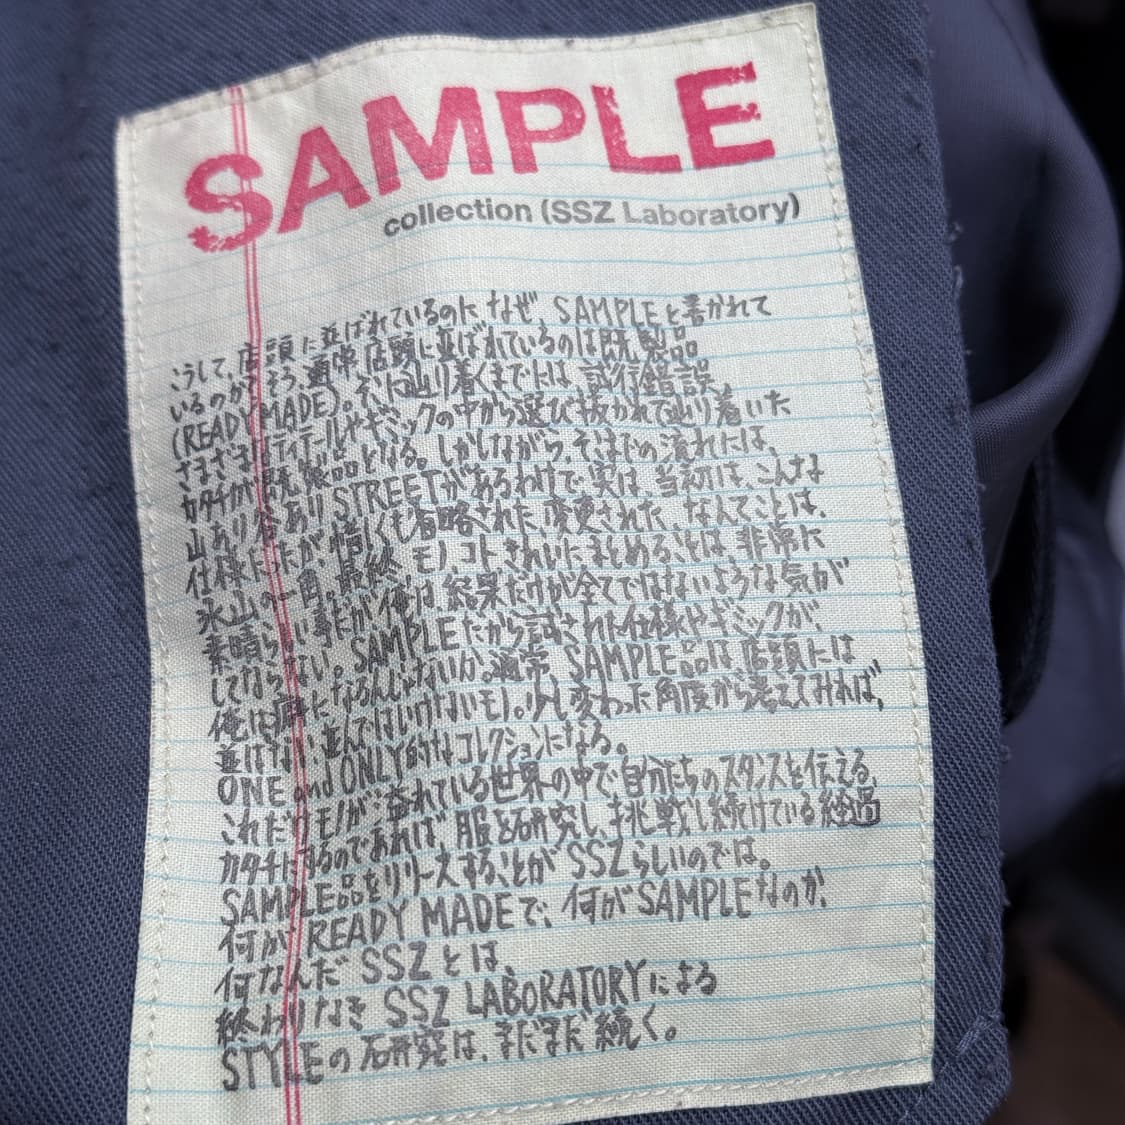 SAMPLE
collection (SSZ Laboratory)
こうして、店頭に並ばれているのに、なぜ、SAMPLEと書かれて
いるのか?そう、通常、店頭に並ばれているのは既製品
(READY MADE)。そこに辿り着くまでには、試行錯誤、
さまざまなディテールやギミックの中から選び抜かれて辿り着いた
カタチが既製品となる。しかしながら、そこまでの流れには、
山あり谷ありSTREETがあるわけで、実は、当初は、こんな
仕様だったが、惜しくも省略された、変更された、なんてことは、
氷山の一角。最終、モノ、コトきれいにまとめることは、非常に
素晴らしい事だが、俺は、結果だけが全てではないような気が
してならない。SAMPLEだから試された仕様やギミックが、
俺は癖になるんじゃないか。通常、SAMPLE品は、店頭には
並ばない、並んではいけないモノ。少し変わった角度から考えてみれば、
ONE and ONLY的なコレクションになる。
これだけモノが溢れている世界の中で、自分たちのスタンスを伝える、
カタチにするのであれば、服を研究し、挑戦し続けている経過
SAMPLE品をリリースすることがSSZらしいのでは。
何がREADY MADEで、何がSAMPLEなのか、
何なんだSSZとは
終わりなきSSZ LABORATORYによる
STYLEの研究は、まだまだ続く。